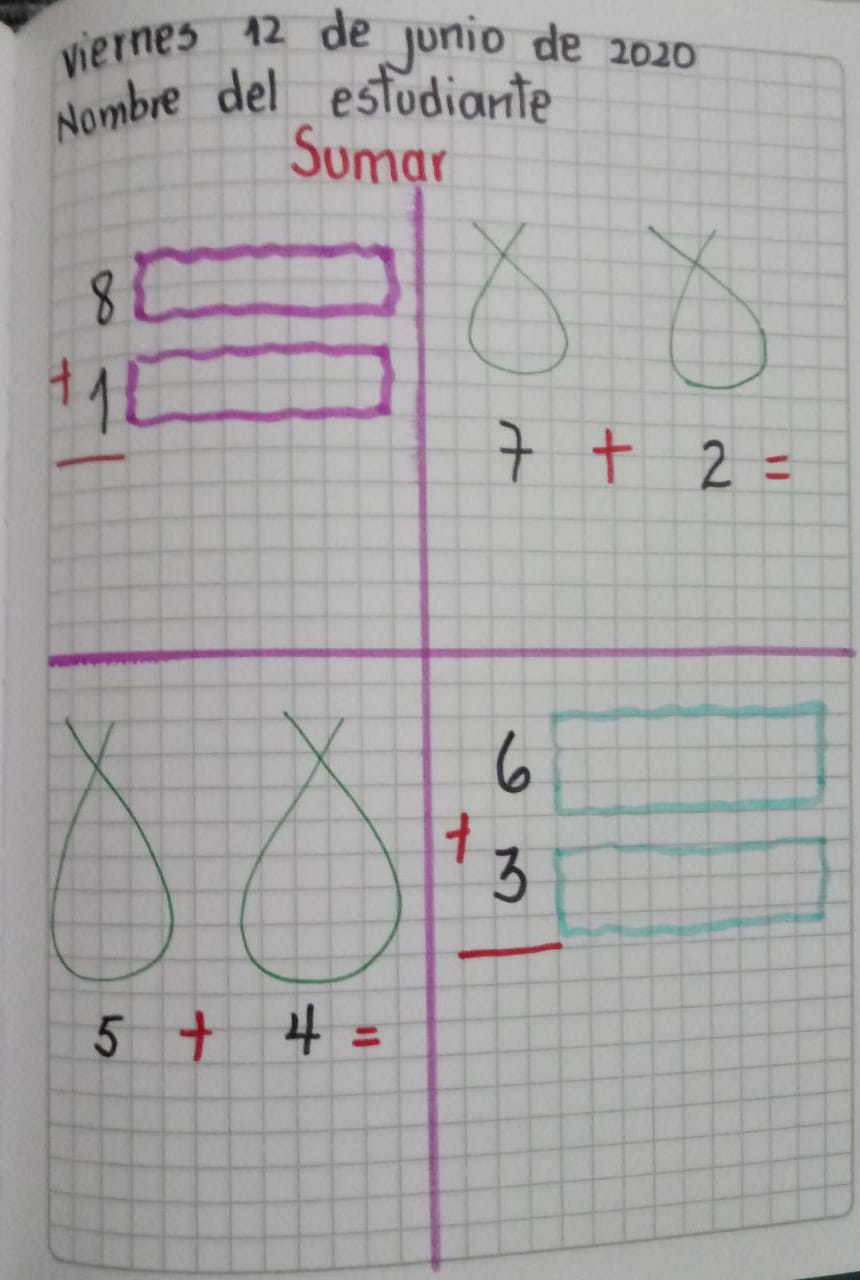 viernes 12 de junio de 2020
Nombre del estudiante
Sumar
8
+ 1
7 + 2 =
5 + 4 =
6
+
3